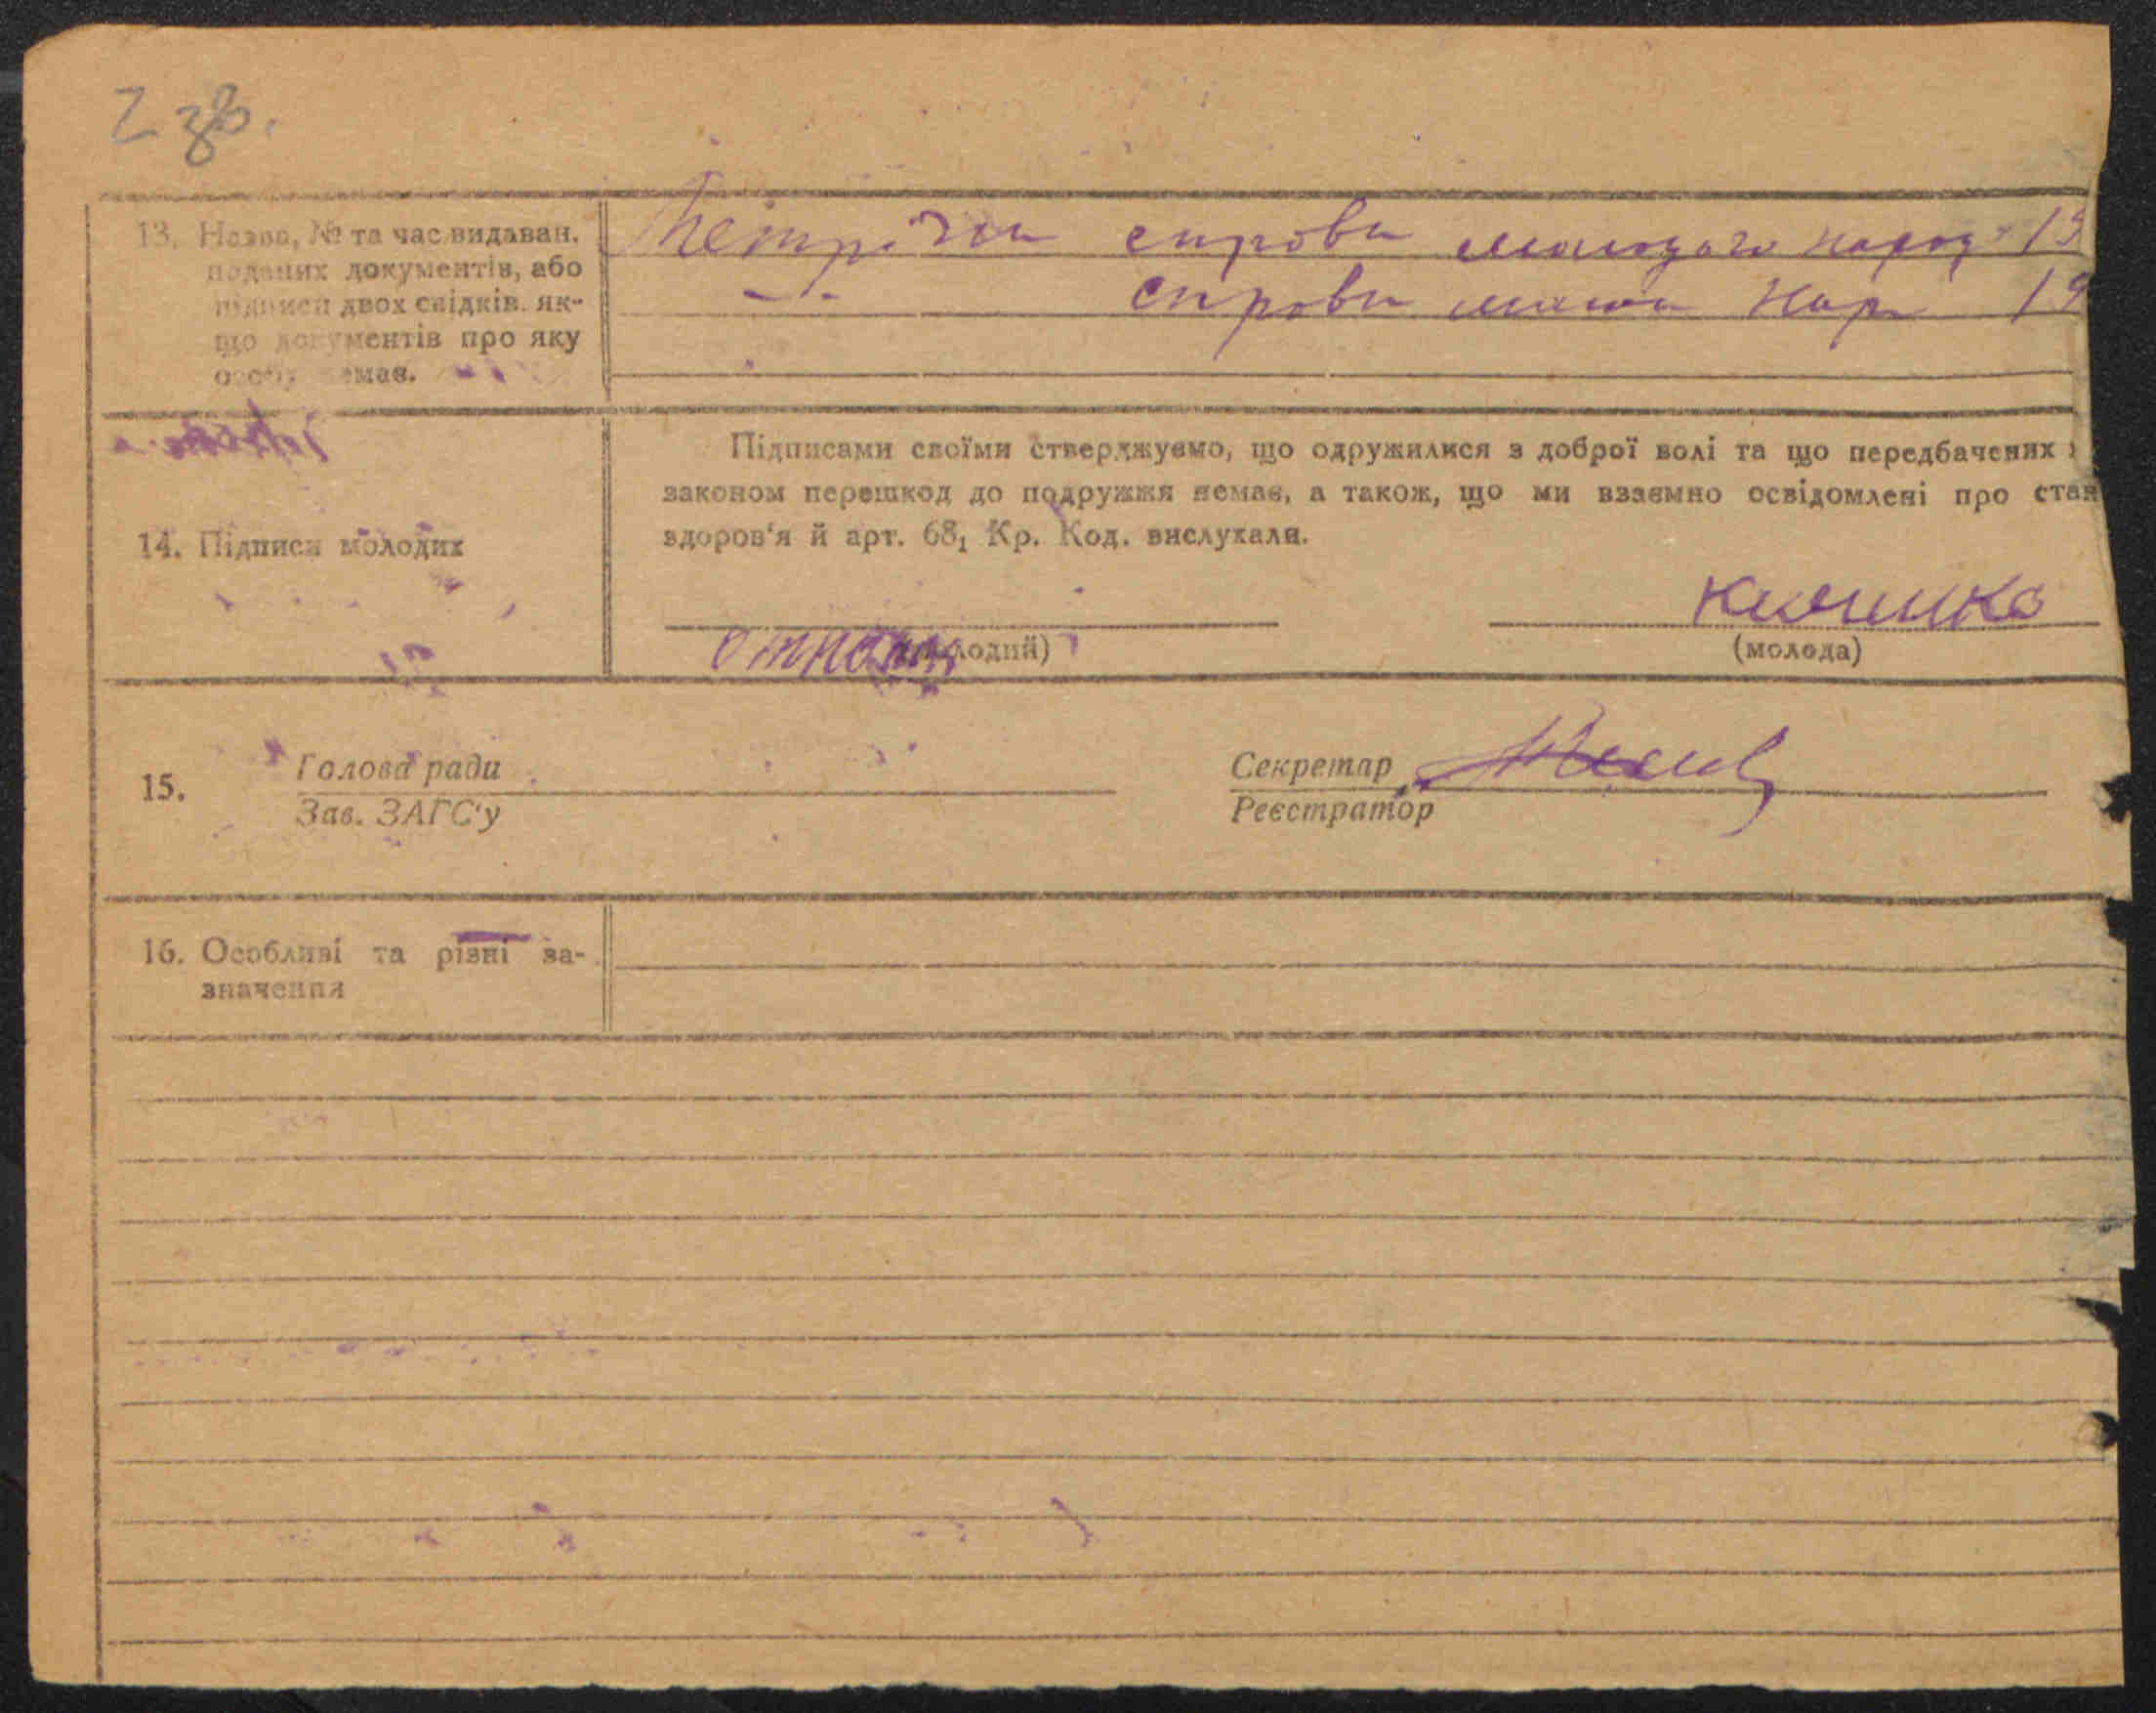 2 зв.
13. Назва, № та час видаван.
поданих документів, або
підписи двох свідків. як-
що документів про яку
особу немає.
спрови молодого народ 19
спрови Нар 19
Підписами своїми стверджуємо, що одружилися з доброї волі та що передбачених
законом перешкод до подружжя немає, а також, що ми взаємно освідомлені про стан
здоров'я й арт. 68₁ Кр. Код. вислухали.
14. Підписи молодих
(молодий)
(молода)
15.
Голова ради
Зав. ЗАГС'у
Секретар
Реєстратор
16. Особливі та різні за-
значення